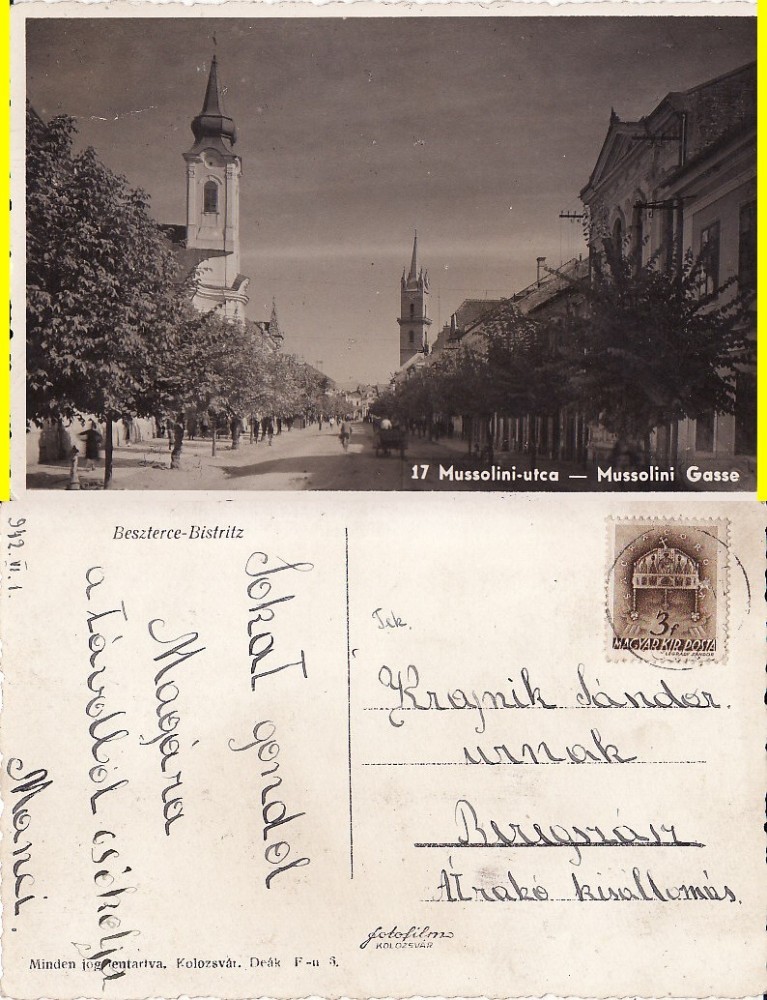 17 Mussolini-utca — Mussolini Gasse
Beszterce-Bistritz
942. VI. 1.
Sokat gondol
Magára
a távolból csókolja
Manci.
3f
MAGYAR KIR. POSTA
LÉGRÁDY SÁNDOR
Tek.
Krajnik Sándor.
urnak
Beregszász
Átrakó kisállomás.
fotofilm
KOLOZSVÁR
Minden jog fentartva. Kolozsvár. Deák F-u